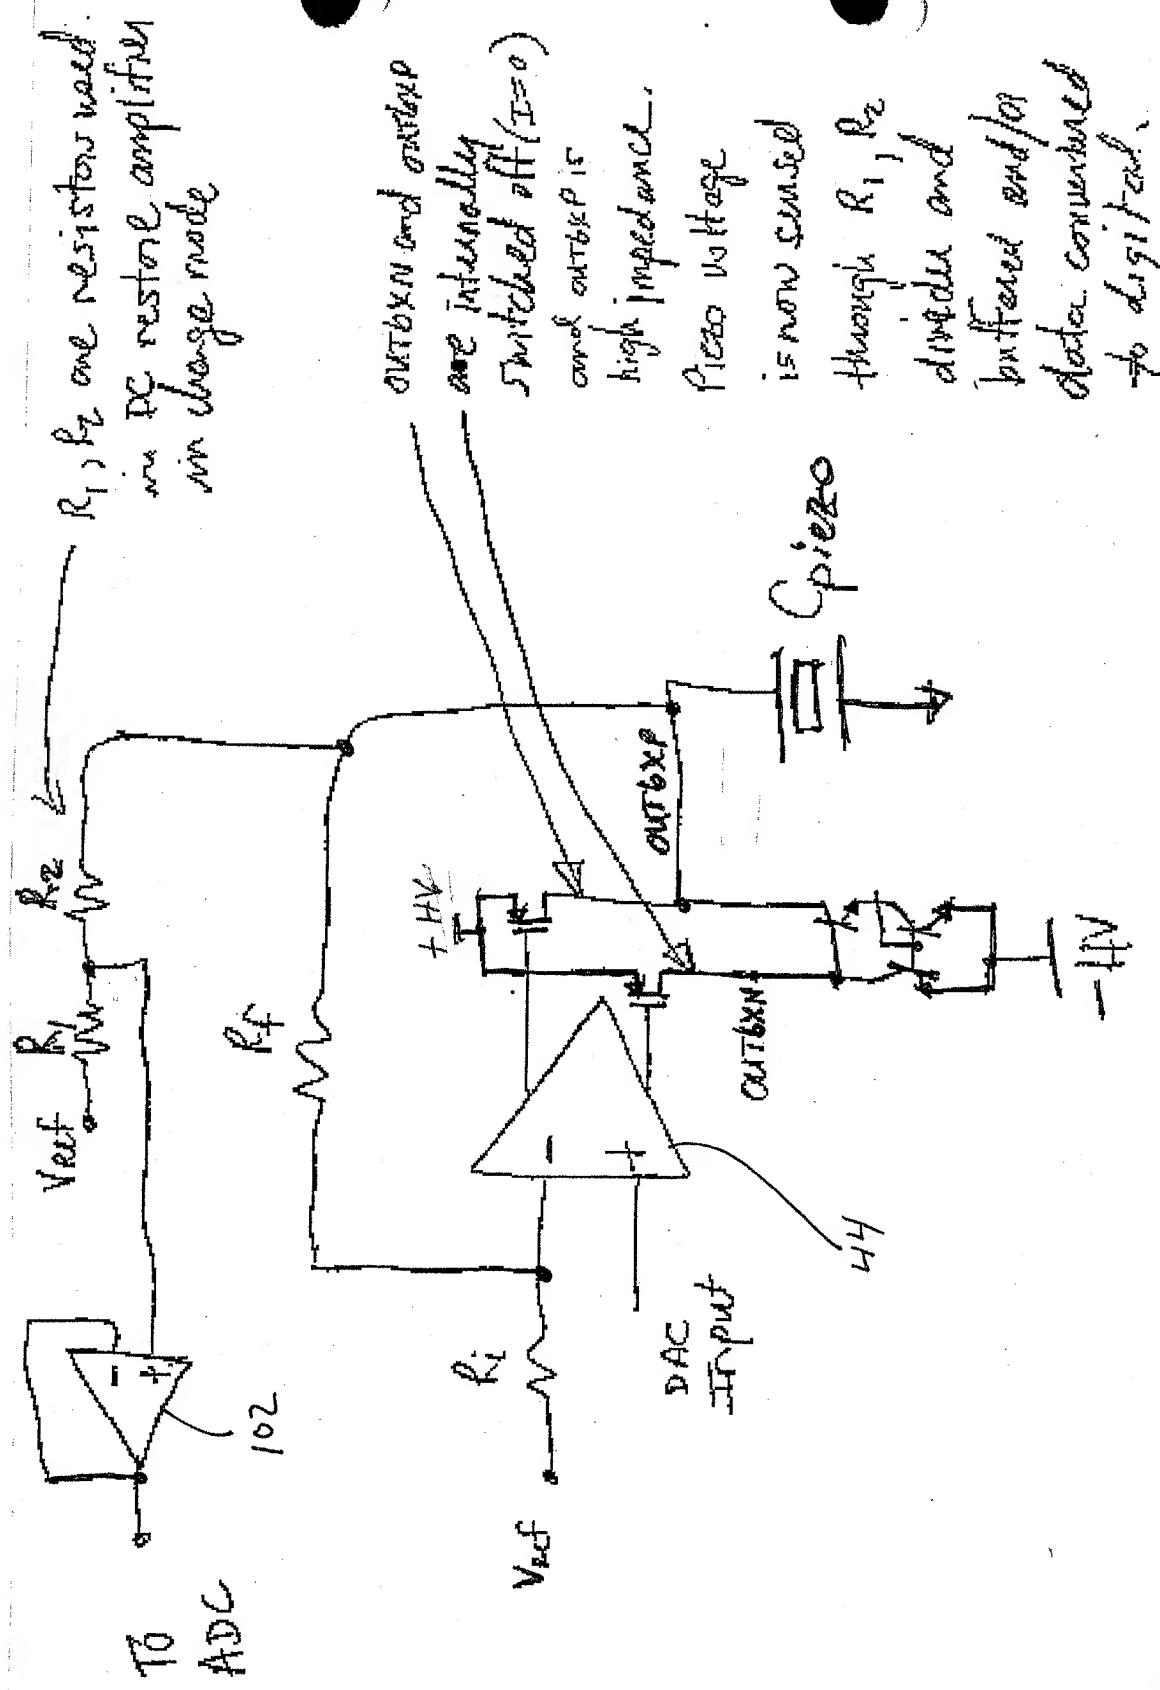 R1, R2 are resistors used
in DC restore amplifier
in charge mode
OUT6XN and OUT6XP
are internally
switched off (I=0)
and OUT6XP is
high impedance.
Piezo voltage
is now sensed
through R1, R2
divider and
buffered and/or
data converted
to digital.
Vref
R1
R2
Rf
102
To
ADC
+HV
OUT6XP
Cpiezo
Vref
Ri
DAC
Input
-
+
-
+
44
OUT6XN
-HV